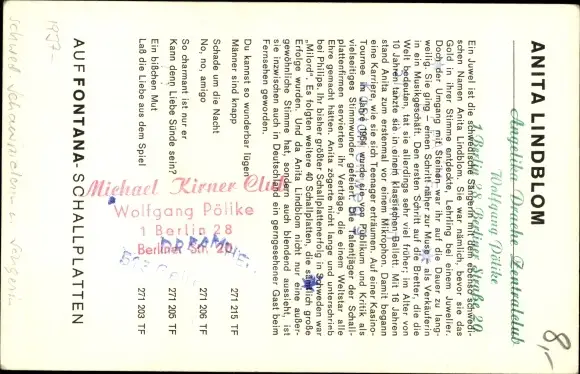 ANITA LINDBLOM
Ein Juwel ist die schwedische Sängerin mit dem ebenso schwedi-
schen Namen Anita Lindblom. Sie war nämlich, bevor sie das
Gold in ihrer Stimme entdeckte, Lehrling bei einem Juwelier.
Doch der Umgang mit Steinen war ihr auf die Dauer zu lang-
weilig. Sie ging – einen Schritt näher zur Muse – als Verkäuferin
in ein Musikgeschäft. Den ersten Schritt auf die Bretter, die die
Welt bedeuten, tat sie allerdings sehr viel früher; im Alter von
10 Jahren tanzte sie in einem klassischen Ballett. Mit 16 Jahren
stand Anita zum erstenmal vor einem Mikrophon. Damit begann
eine Karriere, wie sie sich Teenager erträumen. Auf einer Kasino-
Tournee im Jahre 1954 wurde sie von Publikum und Kritik als
vielseitiges Stimmwunder gefeiert. Die Talentjäger der Schall-
plattenfirmen servierten ihr Verträge, die einem Weltstar alle
Ehre gemacht hätten. Anita zögerte nicht lange und unterschrieb
bei Philips. Ihr bisher größter Schallplattenerfolg in Schweden war
„Milord". Es folgten weitere 40 Schallplatten, die sämtlich große
Erfolge wurden. Und da Anita Lindblom nicht nur eine außer-
gewöhnliche Stimme hat, sondern auch blendend aussieht, ist
sie inzwischen auch in Deutschland ein gerngesehener Gast beim
Fernsehen geworden.
Du kannst so wunderbar lügen
Männer sind knapp 271 215 TF
Schade um die Nacht
No, no, amigo 271 206 TF
So charmant ist nur er
Kann denn Liebe Sünde sein? 271 205 TF
Ein bißchen Mut
Laß die Liebe aus dem Spiel 271 203 TF
AUF FONTANA-SCHALLPLATTEN
Angelika Drache Zentralclub
Wolfgang Pölike
1 Berlin 28, Berliner Straße 20
Michael Kirner Club
Wolfgang Pölike
1 Berlin 28
Berliner Str. 20
8,-
1957